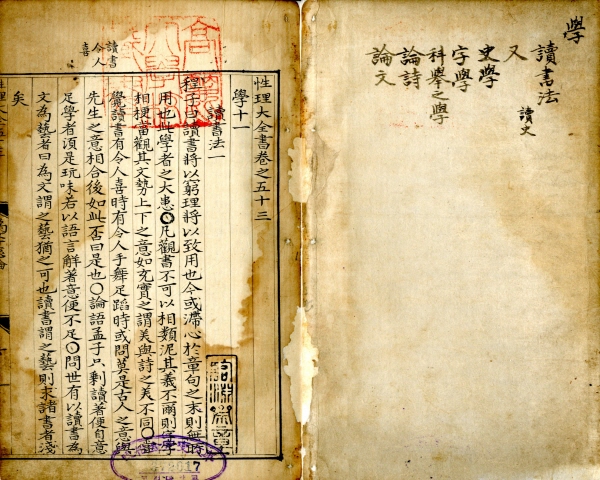 學
讀書法
讀史
又
史學
字學
科舉之學
論詩
論文
性理大全書卷之五十三
學十一
讀書法一
程子曰讀書將以窮理將以致用也今或滯心於章句之末則無所
用也此學者之大患〇凡觀書不可以相類泥其義不爾則字字
相梗當觀其文勢上下之意如充實之謂美與詩之美不同〇嘗
覺讀書有令人喜時有令人手舞足蹈時或問莫是古人之意與
先生之意相合後如此否曰是也〇論語孟子只剩讀著便自意
足學者須是玩味若以語言解著意便不足〇問世有以讀書為
文為藝者曰為文謂之藝猶之可也讀書謂之藝則求諸書者淺
矣
讀書
令人
喜
2017